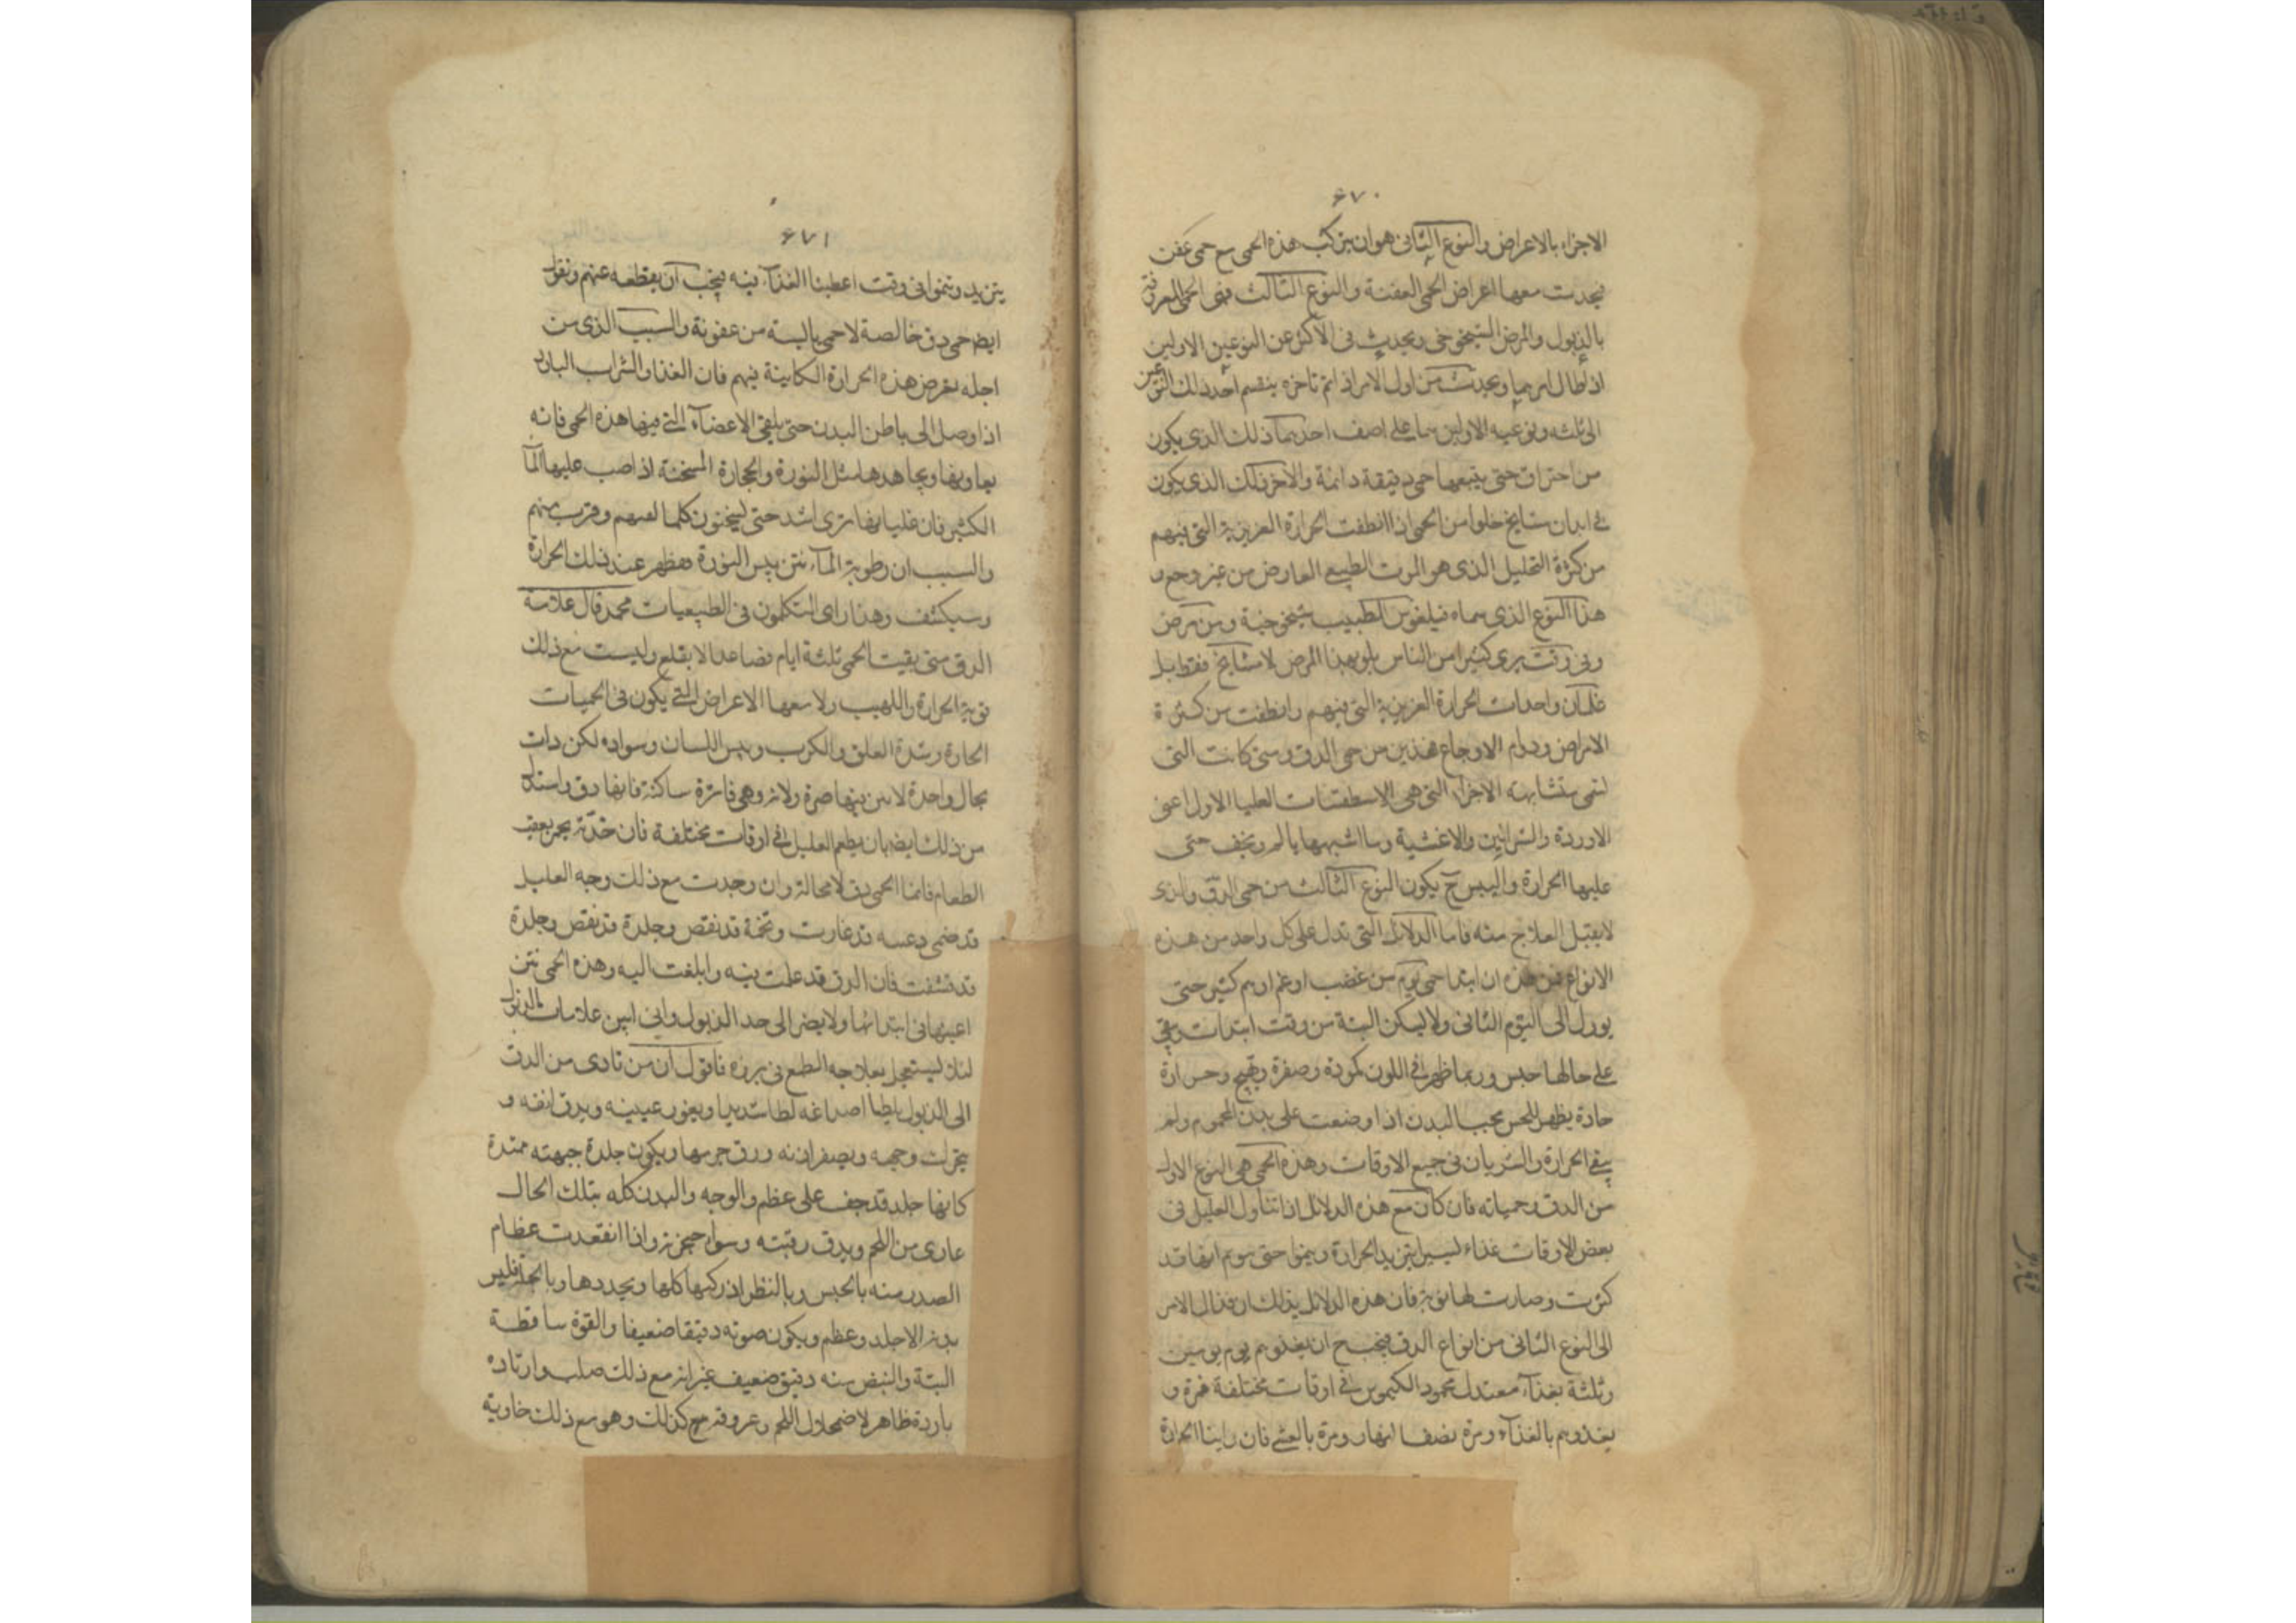 ۶۷۰
الاجزاء بالاعراض والنوع الثانى هو ان يتركب هذه الحمى مع حمى عفن
فيحدث معها اعراض الحمى العفنة والنوع الثالث فهى الحمى المعروفة
بالذبول والمرض الشيخوخى ويحدث فى الاكثر عن النوعين الاولين
اذ طال امرهما ويحدث من اول الامر اذ اتم تاخره ينقسم احد ذلك النوعين
الى ثلثه ونوعيه الاولين ما على اصف احدهما ذلك الذى يكون
من احتراق حتى يتبعها حمى دقيقة دائمة والآخر ذلك الذى يكون
فى ابدان مشايخ خلوا من الحمى اذا انطفت الحرارة الغريزية التى فيهم
من كثرة التحليل الذى هو الموت الطبيعى العارض من غير وجع و
هذا النوع الذى سماه فيلغوس الطبيب شيخوخية ومن مرض
وفى وقت يرى كثيرا من الناس بلو بهذا المرض لا مشايخ فقط بل
غلمان واحداث الحرارة الغريزية التى فيهم وانطفت من كثرة
الامراض ودوام الاوجاع فهذين من حمى الدق ومتى كانت التى
لتقى متشابهه الاجزاء التى هى الاسطقسات العليا الاول اعنى
الاوردة والشرائين والاغشية وما اشبهها يالم ويجف حتى
عليها الحرارة واليبس ح يكون النوع الثالث من حمى الدق والذى
لا يقبل العلاج منه فاما الدلائل التى تدل على كل واحد من هذه
الانواع فهن هذه ان ابتدا حمى يوم من غضب او غم او هم كثير حتى
يورل الى اليوم الثانى ولا ليكن البتة من وقت ابتدات وبقى
على حالها حبس وربما ظهر فى اللون كموده وصفرة وتهيج وحرارة
حادة يظهر للحس بحسب البدن اذا وضعت على بدن المحموم ولم
يبقى الحرارة والشريان فى جميع الاوقات وهذه الحمى هى النوع الاول
من الدق وحمياته فان كان مع هذه الدلائل اذا تناول العليل فى
بعض الاوقات غذاء ليسير ايتزيد الحرارة وينمو حتى يتوهم انها قد
كثرت وصارت لها نوبة فان هذه الدلائل يدلك ان قد ال الامر
الى النوع الثانى من انواع الدق فيجب ح ان يغذوهم يوم يومين
وثلثة بغذآء معتدل محمود الكيموس فى اوقات مختلفة فمرة و
يغذوهم بالغذآء ومرة نصف النهار ومرة بالعشى فان راينا الحرارة
۶۷۱
يتزيد وتنمو فى وقت اعطينا الغذآء فيه فيجب ان يقطعه عنهم ونقول
ايض حمى دق خالصة لا حمى يابسة من عفونة والسبب الذى من
اجله يعرض هذه الحرارة الكاينة فيهم فان الغذا والشراب البارد
اذا وصل الى باطن البدن حتى يلقى الاعضآء التى فيها هذه الحمى فانه
يعاونها ويجاهدها مثل النورة والحجارة المسخنة اذا صب عليها المآ
الكثير فان غليانها ترى اشد حتى ليسخنون كلما لمسهم وقرب منهم
والسبب ان رطوبة المآء نتن يبس النورة فيظهر عند ذلك الحرارة
وسيكشف وهذا راى المتكلمون فى الطبيعيات محمد قال علامة
الدق متى بقيت الحمى ثلثة ايام فصاعدا لا يقلع وليست مع ذلك
نوبة الحرارة واللهيب ولا معها الاعراض التى يكون فى الحميات
الحارة وشدة القلق والكرب ويبس اللسان وسواده لكن دات
بحال واحدة لامن فيها صرة ولانه وهى فاترة ساكنة فانها دق واستدل
من ذلك ايضا بان يطعم العليل فى اوقات مختلفة فان حدته بحر بعقب
الطعام فانما الحمى دق لا محالة وان وجدت مع ذلك وجه العليل
قد ضمى دعسه قد غارت وتخمة قد نقص وجلدة قد نقص وجلدة
قد تشفت فان الدق قد عملت فيه وابلغت اليه وهذه الحمى نتن
اعينها فى ابتدائها ولا يضر الى حد الذبول وانى ابين علامات الذبول
لئلا ليستعجل بعلاجه الطمع فى برؤه فاقول ان من تادى من الدق
الى الذبول يلطا اصداغه لطا شديدا ويغور عينيه ويدق انفه و
يتحرك وجهه ويصفر اذنه ورق جرمها ويكون جلدة جبهته ممتدة
كانها جلد قد جف على عظم والوجه والبدن كله بتلك الحال
عارى من اللحم ويدق رقبته وسواد حجزته واذا انقعدت عظام
الصدر منه بالحبس وبالنظر اذركتها كلها ويحددها وبالجملة فليس
بدنه الا جلد وعظم ويكون صوته دقيقا ضعيفا والقوة ساقطة
البتة والنبض منه دقيق ضعيف غير انه مع ذلك صلب وارتاده
باردة ظاهر لاضمحلال اللحم وعروقه مح كذلك وهو مع ذلك خاوية